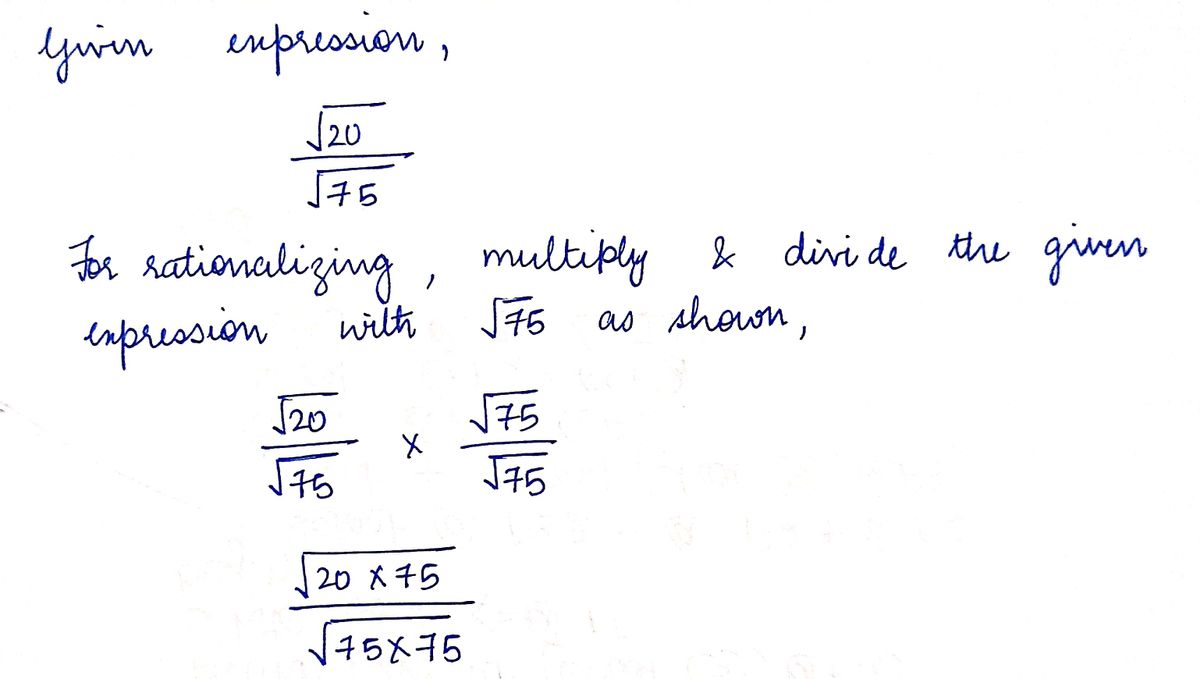 Given expression,
√20
√75
For rationalizing, multiply & divide the given
expression with √75 as shown,
√20/√75 × √75/√75
√20 × 75
√75 × 75